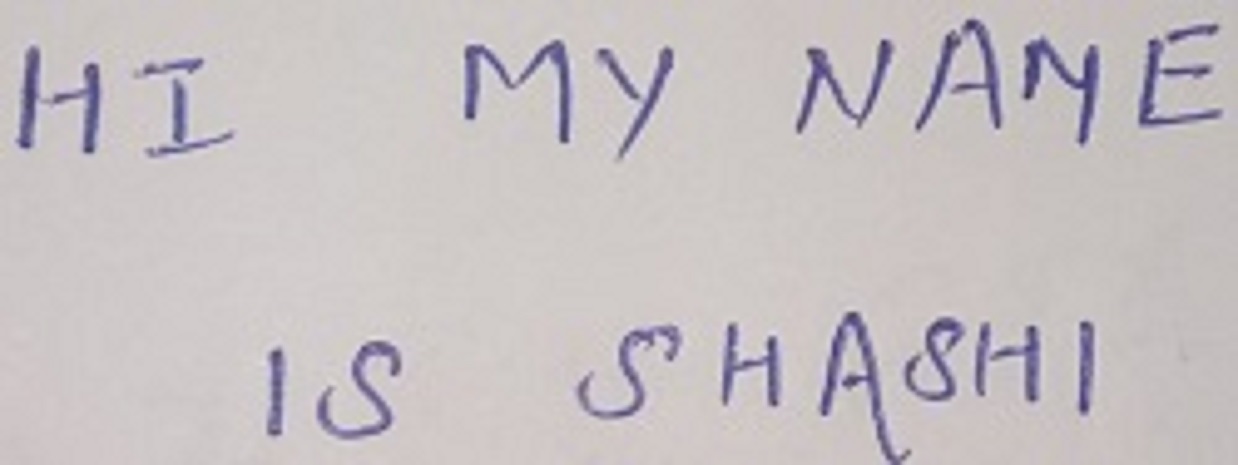 HI MY NAME
IS SHASHI